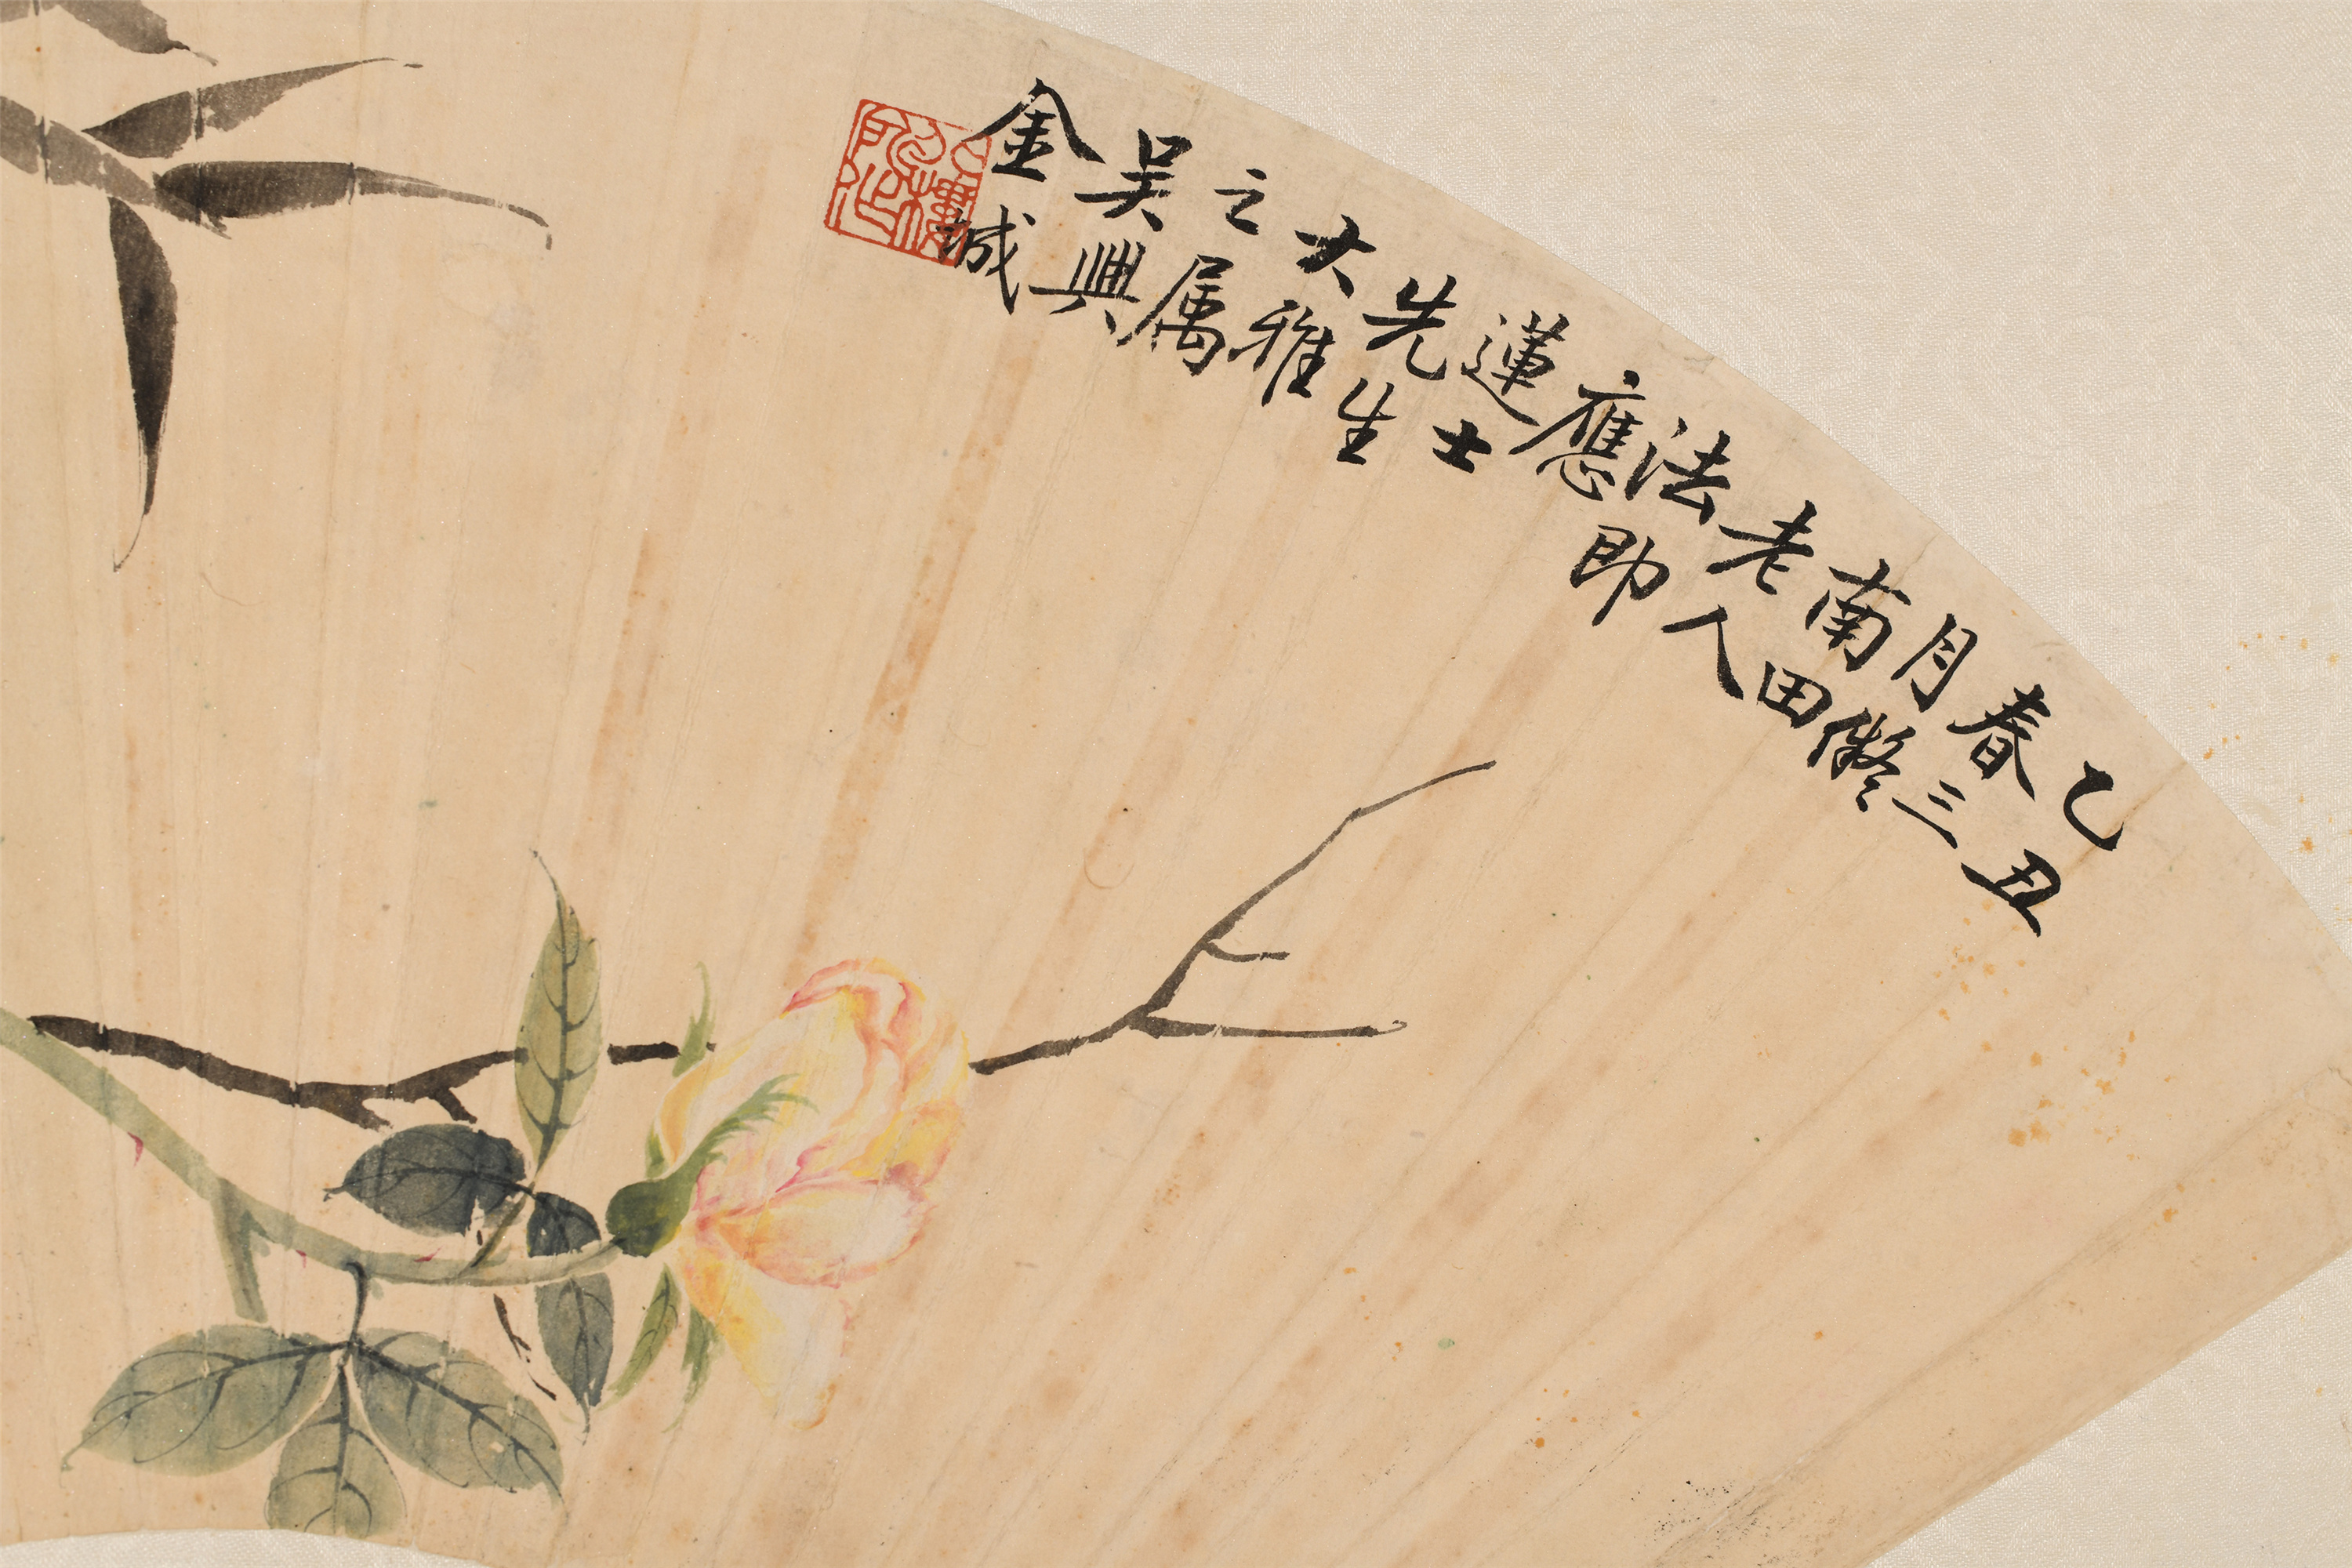 乙丑
春三
月儗
南田
老人
法即
應
蓮士
先生
大雅
之属
吴興
金城